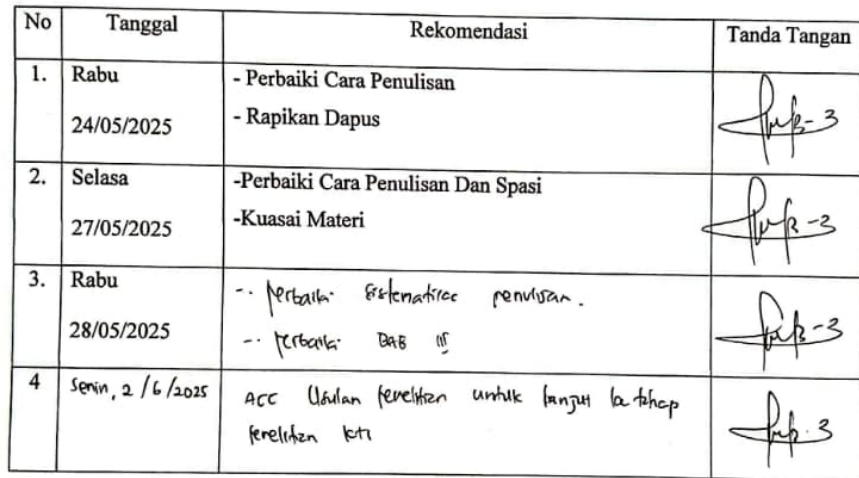 No Tanggal Rekomendasi Tanda Tangan
1. Rabu - Perbaiki Cara Penulisan
24/05/2025 - Rapikan Dapus
2. Selasa -Perbaiki Cara Penulisan Dan Spasi
27/05/2025 -Kuasai Materi
3. Rabu -. Perbaiki sistematika penulisan.
28/05/2025 -. Perbaiki BAB III
4 Senin, 2/6/2025 ACC Usulan Penelitian untuk lanjut ke tahap
Penelitian KTI